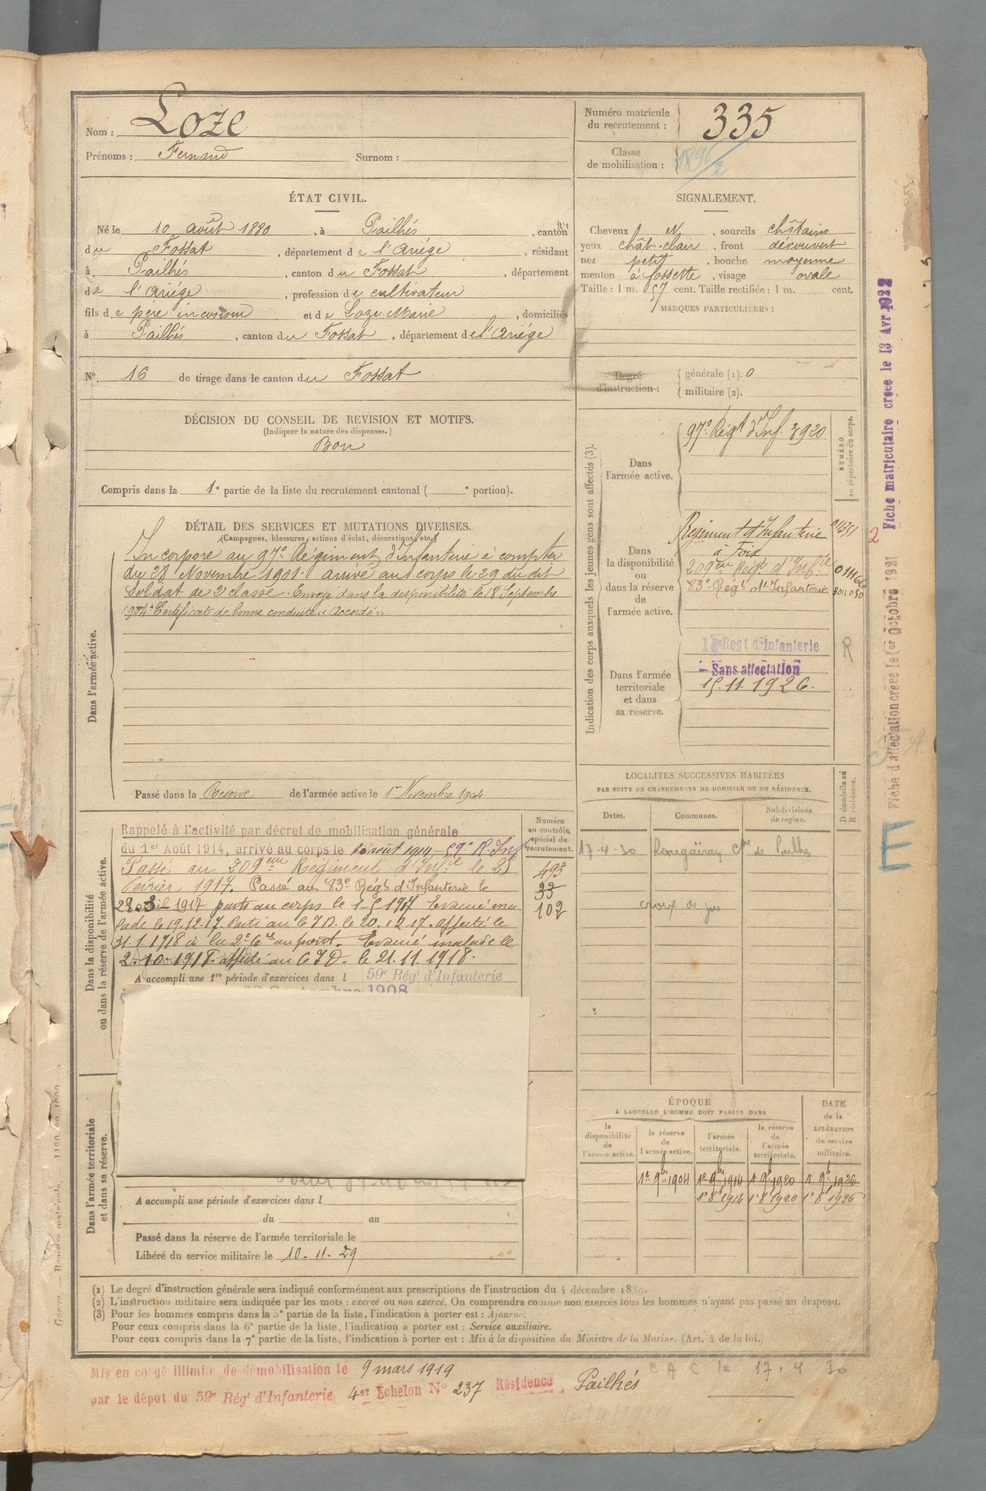 Nom : Loze
Prénoms : Fernand Surnom :
Numéro matricule du recrutement : 335
Classe de mobilisation :
ÉTAT CIVIL.
Né le 10 août 1880, à Pailhés, canton
du Fossat, département de l'Ariége, résidant
à Pailhés, canton du Fossat, département
de l'Ariége, profession de cultivateur
fils de père inconnu et de Loze Marie, domiciliés
à Pailhés, canton du Fossat, département de l'Ariége
N° 16 de tirage dans le canton du Fossat
SIGNALEMENT.
Cheveux N, sourcils châtains
yeux chât-clair, front découvert
nez petit, bouche moyenne
menton à fossette, visage ovale
Taille : 1 m. 57 cent. Taille rectifiée : 1 m. cent.
MARQUES PARTICULIÈRES :
Degré d'instruction : générale (1). 0
militaire (2).
DÉCISION DU CONSEIL DE REVISION ET MOTIFS.
(Indiquer la nature des dispenses.)
Bon
Compris dans la 1e partie de la liste du recrutement cantonal ( e portion).
DÉTAIL DES SERVICES ET MUTATIONS DIVERSES.
(Campagnes, blessures, actions d'éclat, décorations, etc.)
Dans l'armée active.
Incorporé au 97e Régiment d'Infanterie à compter
du 28 Novembre 1901. arrivé au corps le 29 du dit
Soldat de 2e classe. Envoyé dans la disponibilité le 18 Septembre
1904. Certificat de bonne conduite « Accordé »
Passé dans la Réserve de l'armée active le 1er Novembre 1904
Dans la disponibilité ou dans la réserve de l'armée active.
Numéro au contrôle spécial du recrutement.
Rappelé à l'activité par décret de mobilisation générale
du 1er Août 1914, arrivé au corps le août 1914 59e R. Inf
Passé au 209ème Régiment d'Infie le 25
février 1917. Passé au 83e Régt d'Infanterie le
1917 parti au corps le 1917 Evacué ma
lade le 19.12.17 Parti au C I D. le 20.12.17. affecté le
31.1.1918 à la 2e Cie au front. Evacué malade le
2.10.1918 affecté au C I D. le 21.11.1918.
493
33
102
A accompli une 1re période d'exercices dans l 59e Régt d'Infanterie
1908
Indication des corps auxquels les jeunes gens sont affectés (3).
NUMÉRO au répertoire du corps.
Dans l'armée active.
97e Régt d'Inf. 3920
Dans la disponibilité ou dans la réserve de l'armée active.
Régiment d'Infanterie
à Foix
209ème Régt d'Infie
83e Régt d'Infanterie
Dans l'armée territoriale et dans sa réserve.
Regt d'Infanterie
Sans affectation
15.11.1926.
R
LOCALITÉS SUCCESSIVES HABITÉES
PAR SUITE DE CHANGEMENTS DE DOMICILE OU DE RÉSIDENCE.
Dates. Communes. Subdivisions de région. D domicile ou R résidence.
17-4-30 de Pailhés
Dans l'armée territoriale et dans sa réserve.
A accompli une période d'exercices dans l
du au
Passé dans la réserve de l'armée territoriale le
Libéré du service militaire le 10.11.29
ÉPOQUE
À LAQUELLE L'HOMME DOIT PASSER DANS
DATE de la LIBÉRATION du service militaire.
la disponibilité de l'armée active. la réserve de l'armée active. l'armée territoriale. la réserve de l'armée territoriale.
1er 9bre 1904 1er 9bre 1914 1er 9bre 1920 1er 9bre 1926
1er 8 1914 1er 8 1920 1er 8 1926
(1) Le degré d'instruction générale sera indiqué conformément aux prescriptions de l'instruction du 4 décembre
(2) L'instruction militaire sera indiquée par les mots : exercé ou non exercé. On comprendra comme non exercés tous les hommes n'ayant pas passé au drapeau.
(3) Pour les hommes compris dans la 5e partie de la liste, l'indication à porter est : Ajourné.
Pour ceux compris dans la 6e partie de la liste, l'indication à porter est : Service auxiliaire.
Pour ceux compris dans la 7e partie de la liste, l'indication à porter est : Mis à la disposition du Ministre de la Marine. (Art. 4 de la loi.)
Mis en congé illimité de démobilisation le 9 mars 1919
par le dépot du 59e Régt d'Infanterie 4er Echelon N° 237 Résidence, Pailhés
C A C le 17.4 30
Fiche matriculaire créée le 13 Avr 1922
Fiche d'affectation créée le 1er Octobre 1921
2
E